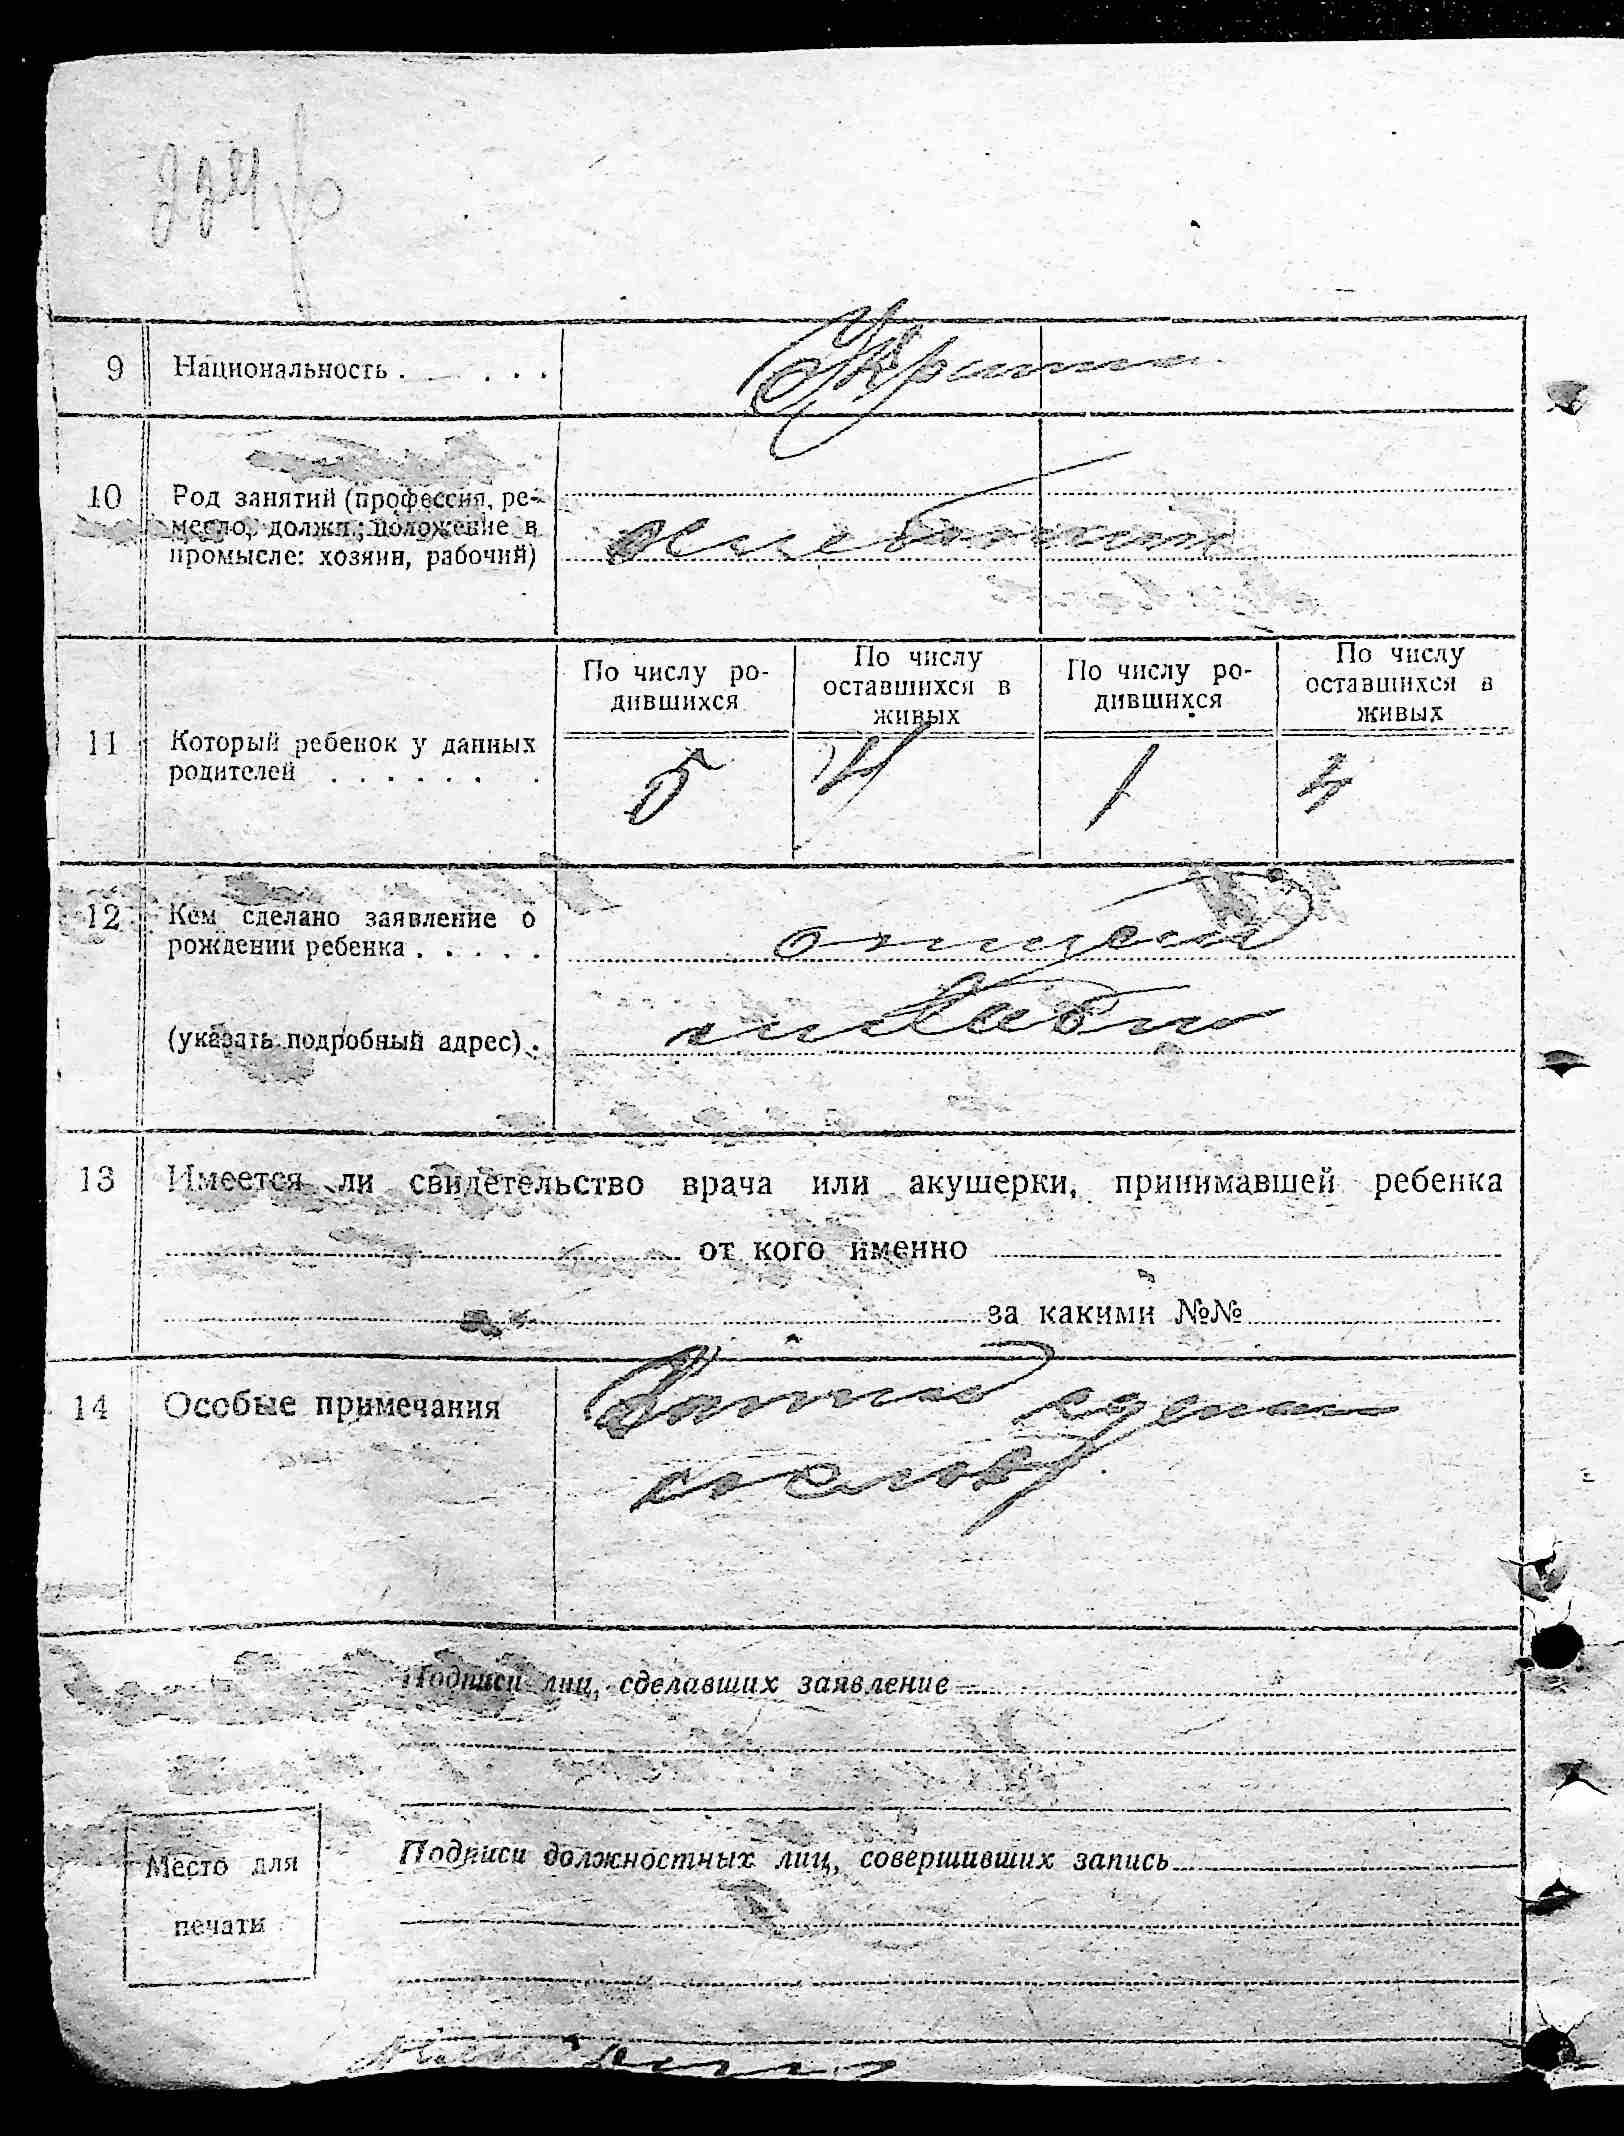 9 Национальность . . . .
10 Род занятий (профессия, ре-
месло, должн.; положение в
промысле: хозяин, рабочий)
хлебопашт
11 Который ребенок у данных
родителей . . . . . . .
По числу ро-
дившихся
По числу
оставшихся в
живых
По числу ро-
дившихся
По числу
оставшихся в
живых
5 4 1 4
12 Кем сделано заявление о
рождении ребенка . . . . .
отцем
(указать подробный адрес) .
13 Имеется ли свидетельство врача или акушерки, принимавшей ребенка
от кого именно
за какими №№
14 Особые примечания
Подписи лиц, сделавших заявление
Место для
печати
Подписи должностных лиц, совершивших запись